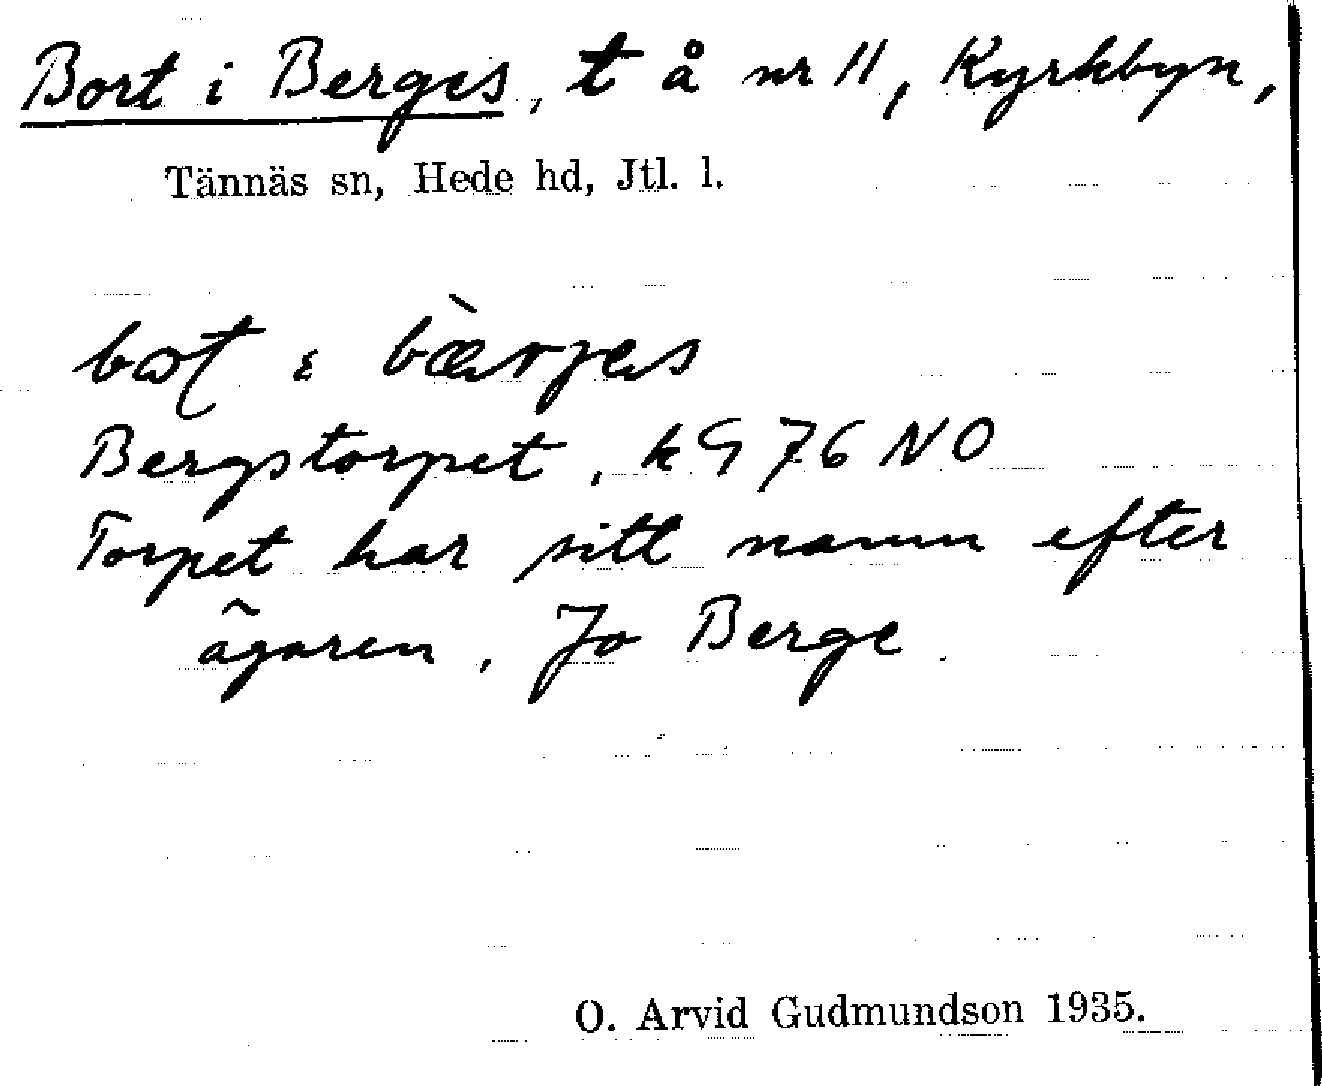 Bort i Berges, t å nr 11, Kyrkbyn,
Tännäs sn, Hede hd, Jtl. l.
Bergstorpet, k G 76 NO
Torpet har sitt namn efter
ägaren, Jo Berge.
O. Arvid Gudmundson 1935.